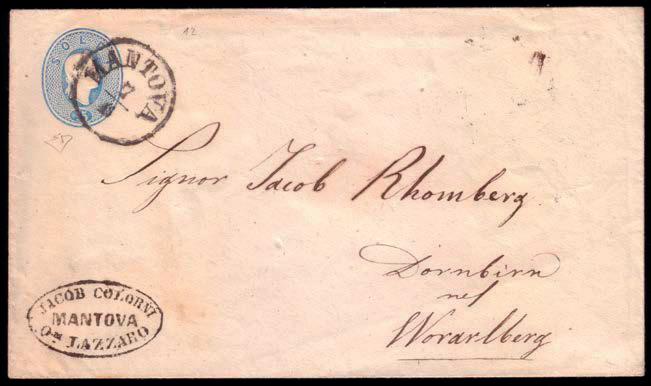 12
SOL
MANTOVA
7
Signor Jacob Rhomberg
Dornbirn
nel
Worarlberg
JACOB COLORNI
MANTOVA
Qm LAZZARO